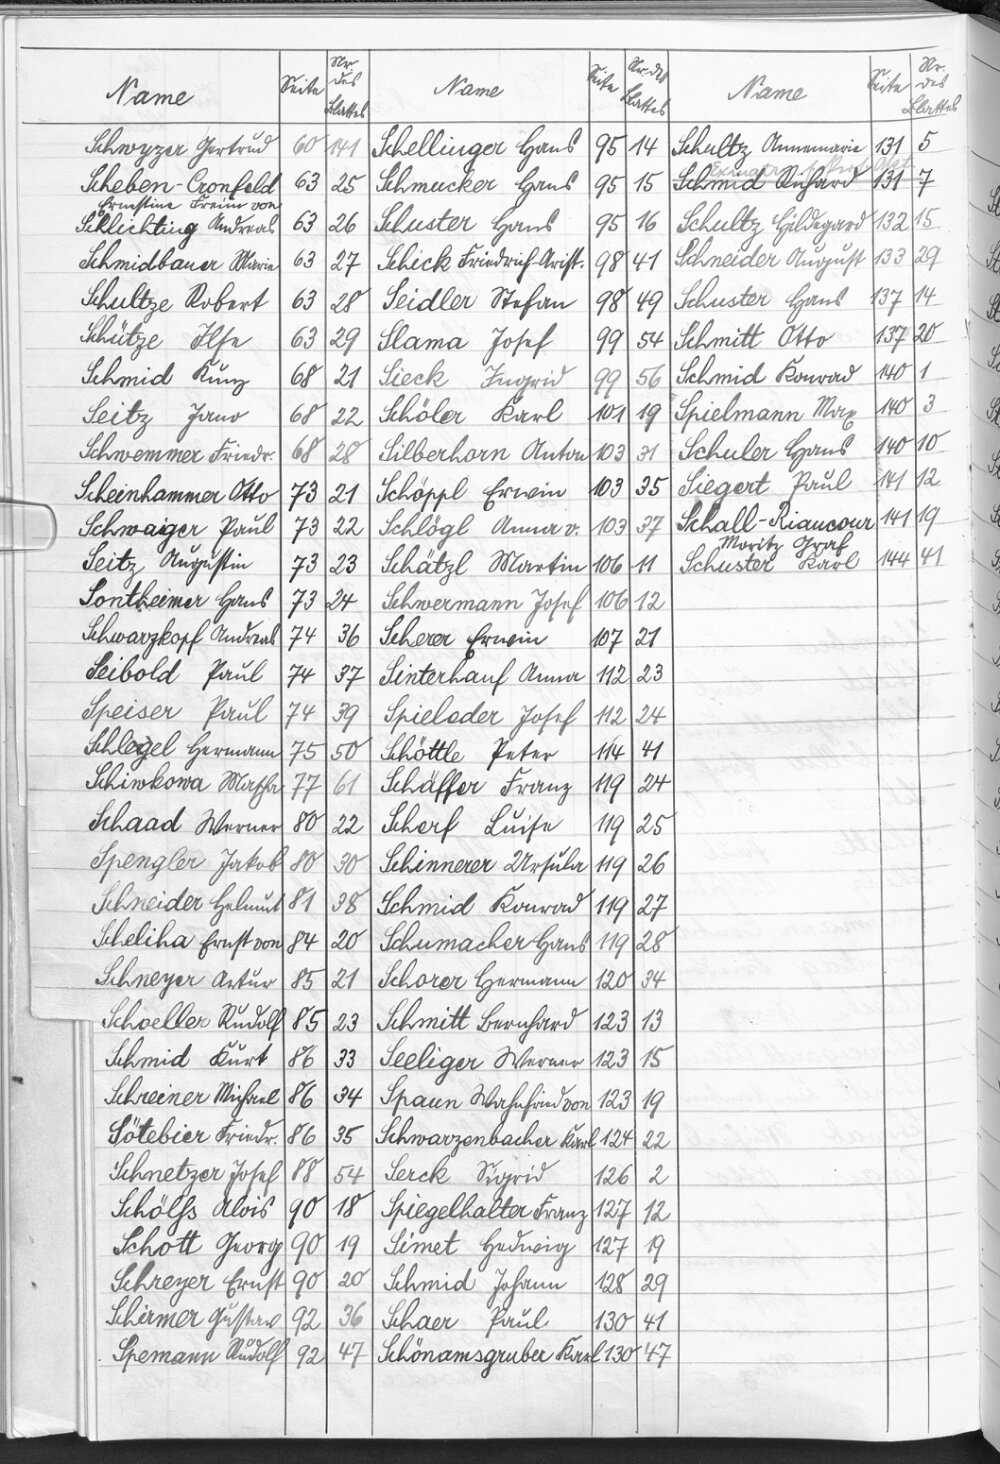 Name Seite Nr. des Blattes Name Seite Nr. des Blattes Name Seite Nr. des Blattes
Schwyzer Gertrud 60 141
Scheben-Cronfeld 63 25
Ernestine Freiin von
Schlichting Andreas 63 26
Schmidbauer Marie 63 27
Schultze Robert 63 28
Schütze Ilse 63 29
Schmid Kunz 68 21
Seitz Jano 68 22
Schwemmer Friedr. 68 28
Scheinhammer Otto 73 21
Schwaiger Paul 73 22
Seitz Augustin 73 23
Sontheimer Hans 73 24
Schwarzkopf Andreas 74 36
Seibold Paul 74 37
Speiser Paul 74 39
Schlegel Hermann 75 50
Schiwkowa Mascha 77 61
Schaad Werner 80 22
Spengler Jakob 80 30
Schneider Helmut 81 38
Scheliha Ernst von 84 20
Schneyer Artur 85 21
Schoeller Rudolf 85 23
Schmid Kurt 86 33
Schreiner Michael 86 34
Sötebier Friedr. 86 35
Schnetzer Josef 88 54
Schölss Alois 90 18
Schott Georg 90 19
Schreyer Ernst 90 20
Schirmer Gustav 92 36
Spemann Rudolf 92 47
Schellinger Hans 95 14
Schmucker Hans 95 15
Schuster Hans 95 16
Schick Friedrich-Arist. 98 41
Seidler Stefan 98 49
Slama Josef 99 54
Sieck Ingrid 99 56
Schöler Karl 101 19
Silberhorn Anton 103 31
Schöppl Erwin 103 35
Schlögl Anna v. 103 37
Schätzl Martin 106 11
Schwermann Josef 106 12
Scherer Erwin 107 21
Sinterhauf Anna 112 23
Spieleder Josef 112 24
Schöttle Peter 114 41
Schäffer Franz 119 24
Scherf Luise 119 25
Schinnerer Ursula 119 26
Schmid Konrad 119 27
Schumacher Hans 119 28
Schorer Hermann 120 34
Schmitt Bernhard 123 13
Seeliger Werner 123 15
Spaun Wahnfried von 123 19
Schwarzenbacher Karl 124 22
Serck Sigrid 126 2
Spiegelhalter Franz 127 12
Simet Hedwig 127 19
Schmid Johann 128 29
Schaer Paul 130 41
Schönamsgruber Karl 130 47
Schultz Annemarie 131 5
Schmid Richard 131 7
Schultz Hildegard 132 15
Schneider August 133 29
Schuster Hans 137 14
Schmitt Otto 137 20
Schmid Konrad 140 1
Spielmann Max 140 3
Schuler Hans 140 10
Siegert Paul 141 12
Schall-Riaucour 141 19
Moritz Graf
Schuster Karl 144 41